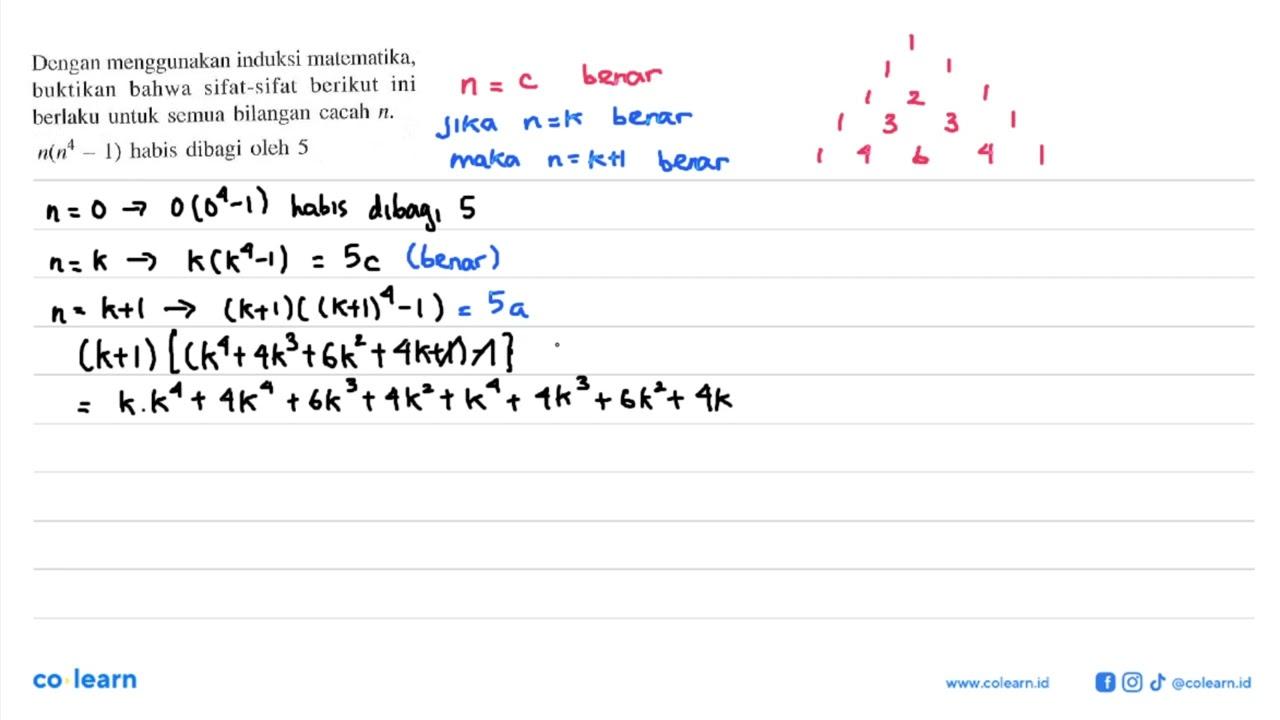 Dengan menggunakan induksi matematika,
buktikan bahwa sifat-sifat berikut ini
berlaku untuk semua bilangan cacah n.
n(n⁴ – 1) habis dibagi oleh 5
n = c benar
jika n=k benar
maka n=k+1 benar
1
1 1
1 2 1
1 3 3 1
1 4 6 4 1
n = 0 → 0(0⁴-1) habis dibagi 5
n = k → k(k⁴-1) = 5c (benar)
n = k+1 → (k+1)((k+1)⁴-1) = 5a
(k+1)[(k⁴+4k³+6k²+4k+1)-1]
= k.k⁴ + 4k⁴ + 6k³ + 4k² + k⁴ + 4k³ + 6k² + 4k
co learn
www.colearn.id
@colearn.id